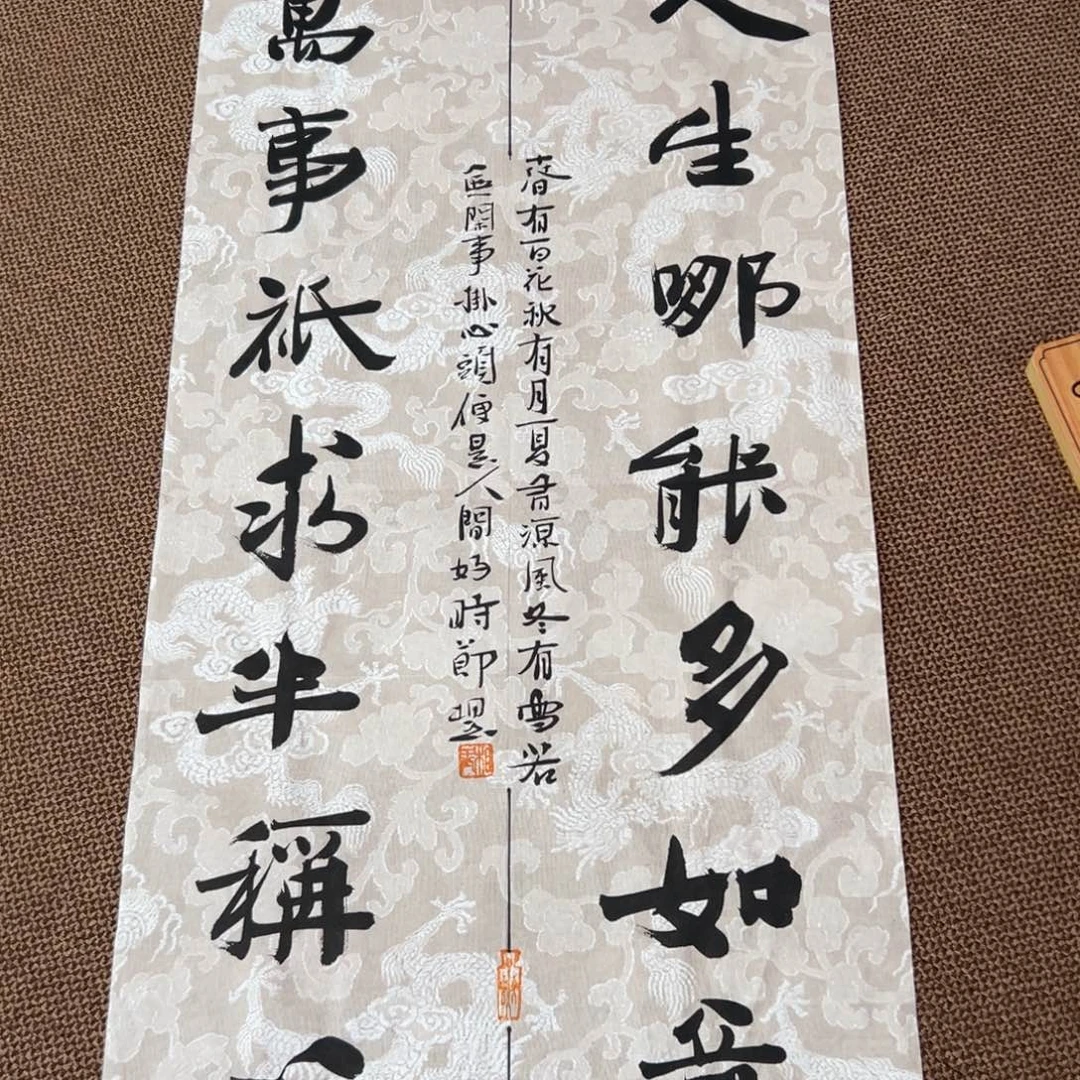 人生哪能多如意
春有百花秋有月夏有涼風冬有雪若
無閑事掛心頭便是人間好時節
萬事祇求半稱